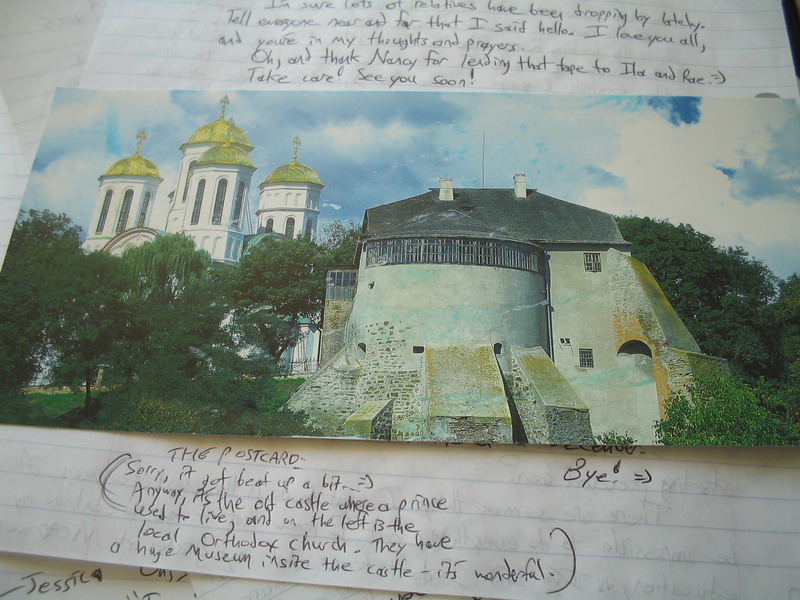 I'm sure lots of relatives have been dropping by lately.
Tell everyone near and far that I said hello. I love you all,
and you're in my thoughts and prayers.
Oh, and thank Nancy for lending that tape to Ila and Rae. =)
Take care! See you soon!
Bye! =)
THE POSTCARD-
(Sorry, it got beat up a bit... =)
Anyway, it's the old castle where a prince
used to live, and on the left is the
local Orthodox church. They have
a huge museum inside the castle - it's wonderful.)
-Jessica